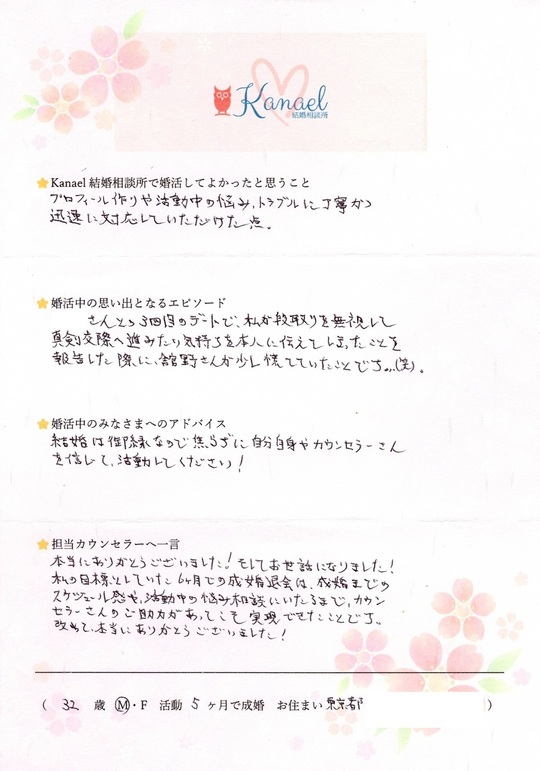 Kanael
結婚相談所
Kanael 結婚相談所で婚活してよかったと思うこと
プロフィール作りや活動中の悩み、トラブルに丁寧かつ
迅速に対応していただけた点。
婚活中の思い出となるエピソード
さんとの3回目のデートで、私が段取りを無視して
真剣交際へ進みたい気持ちを本人に伝えてしまったことを
報告した際に、舘野さんが少し慌てていたことです...(笑)。
婚活中のみなさまへのアドバイス
結婚は御縁なので焦らずに自分自身やカウンセラーさん
を信じて、活動してください!
担当カウンセラーへ一言
本当にありがとうございました!そしてお世話になりました!
私の目標としていた6ヶ月での成婚退会は、成婚までの
スケジュール感や、活動中の悩み相談にいたるまで、カウン
セラーさんのご助力があってこそ実現できたことです。
改めて、本当にありがとうございました!
( 32 歳 M・F 活動 5 ヶ月で成婚 お住まい 東京都 )